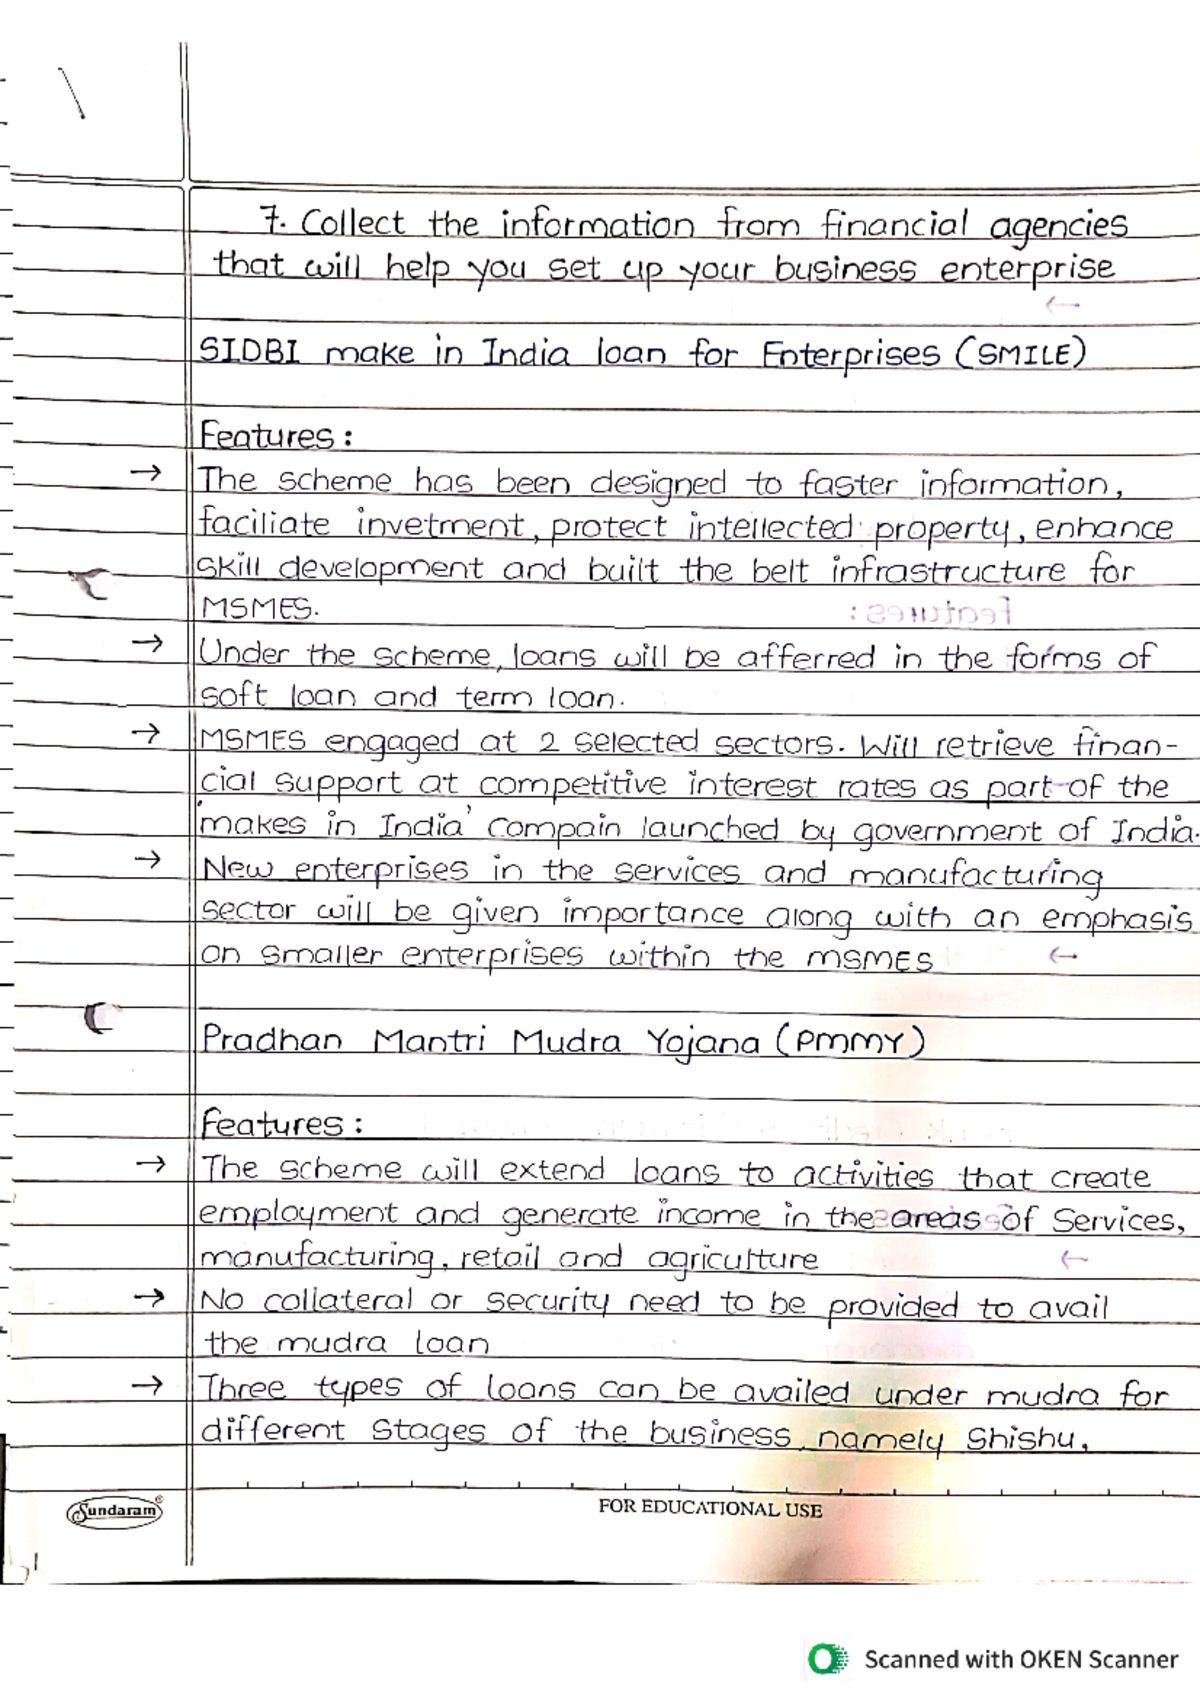 7. Collect the information from financial agencies
that will help you set up your business enterprise
SIDBI make in India loan for Enterprises (SMILE)
Features :
→ The scheme has been designed to faster information,
faciliate invetment, protect intellected property, enhance
skill development and built the belt infrastructure for
MSMES.
→ Under the scheme, loans will be afferred in the forms of
soft loan and term loan.
→ MSMES engaged at 2 selected sectors. Will retrieve finan-
cial support at competitive interest rates as part of the
'makes in India' compain launched by government of India.
→ New enterprises in the services and manufacturing
sector will be given importance along with an emphasis
on smaller enterprises within the MSMES
Pradhan Mantri Mudra Yojana (PMMY)
Features :
→ The scheme will extend loans to activities that create
employment and generate income in the areas of Services,
manufacturing, retail and agriculture
→ No collateral or security need to be provided to avail
the mudra loan
→ Three types of loans can be availed under mudra for
different stages of the business, namely Shishu,
Sundaram®
FOR EDUCATIONAL USE
Scanned with OKEN Scanner